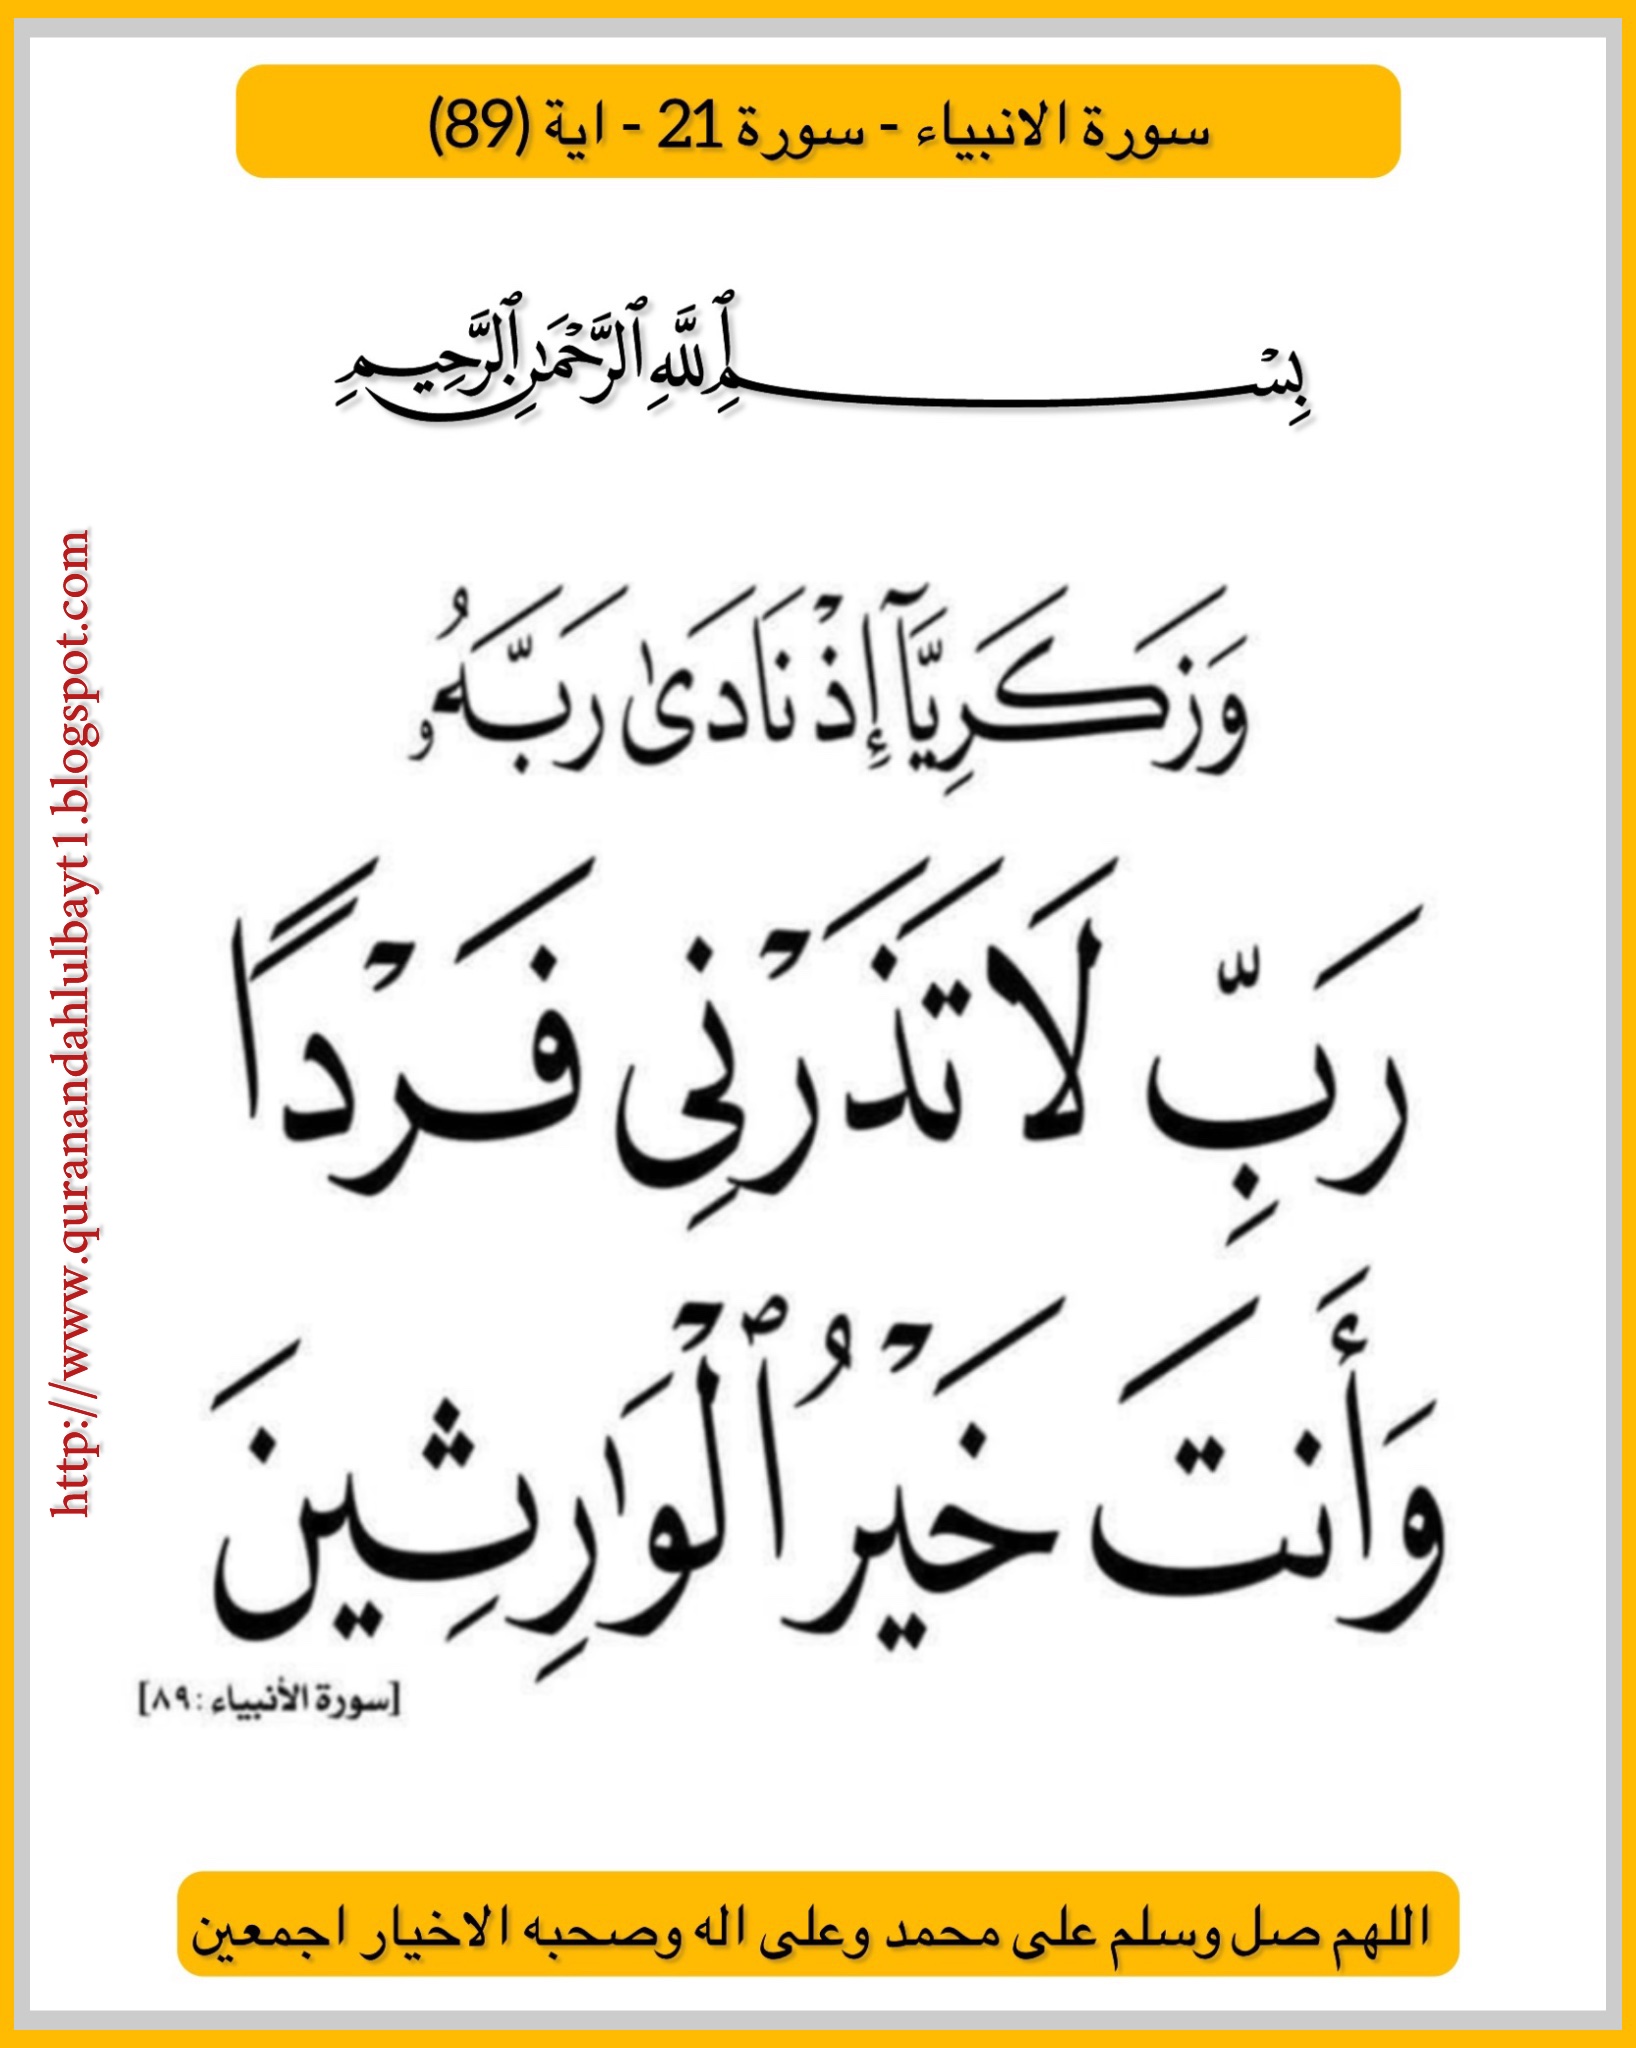 سورة الانبياء - سورة 21 - اية (89)
بِسْمِ ٱللَّهِ ٱلرَّحْمَٰنِ ٱلرَّحِيمِ
وَزَكَرِيَّآ إِذْ نَادَىٰ رَبَّهُۥ
رَبِّ لَا تَذَرْنِى فَرْدًا
وَأَنتَ خَيْرُ ٱلْوَٰرِثِينَ
[سورة الأنبياء: ٨٩]
اللهم صل وسلم على محمد وعلى اله وصحبه الاخيار اجمعين
http://www.quranandahlulbayt1.blogspot.com